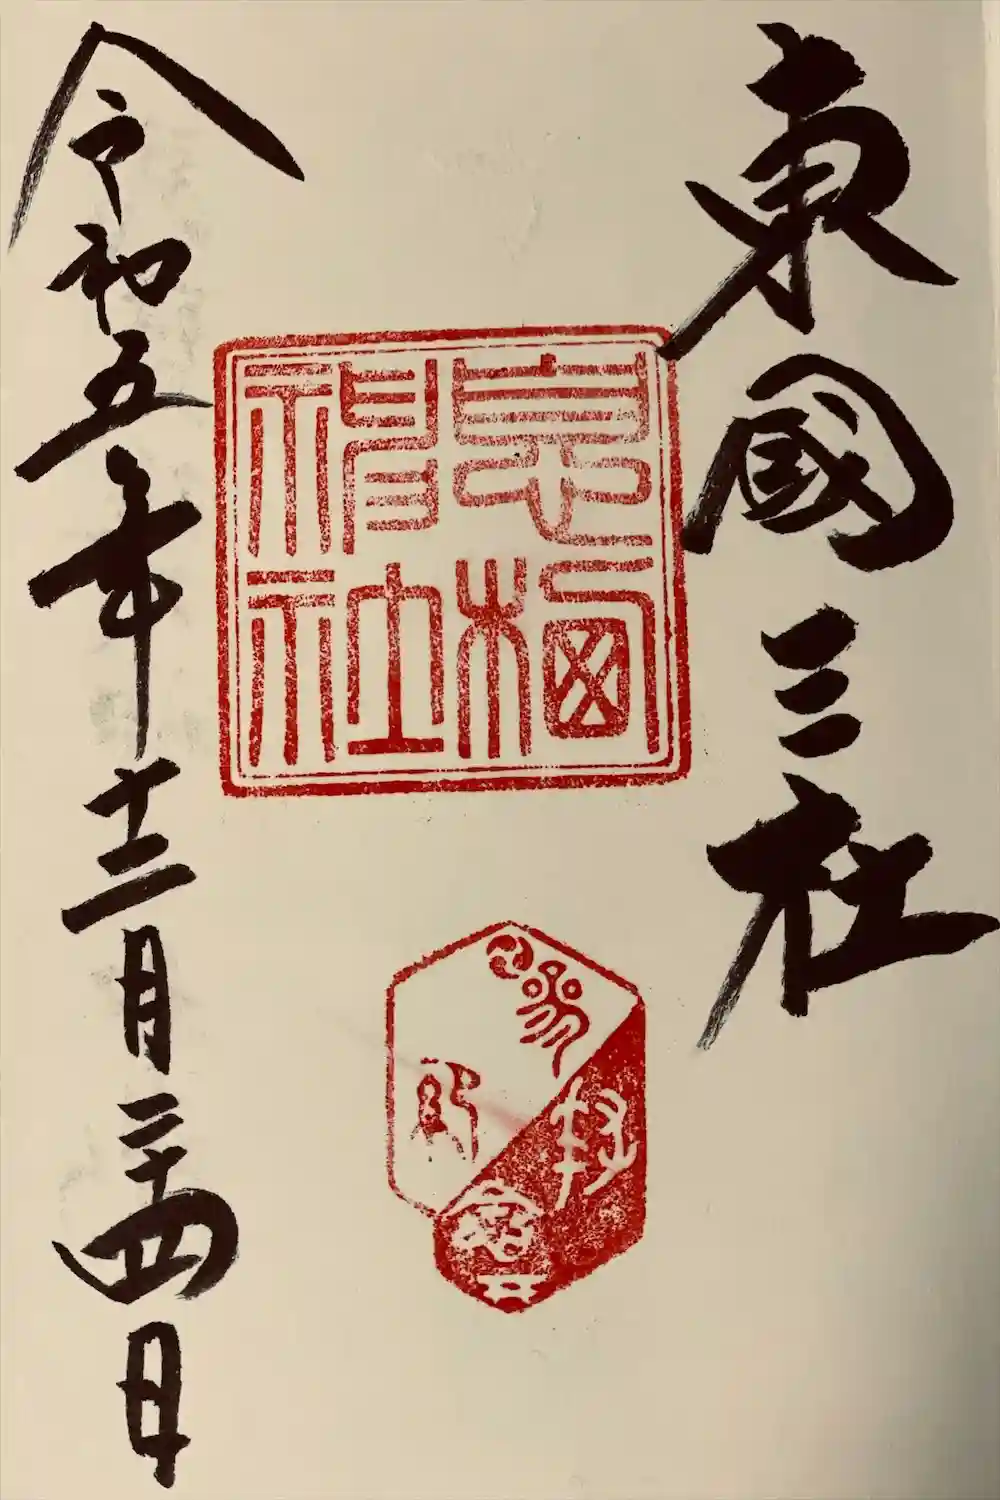 東國三社
息栖
神社
令和五年十二月二十四日